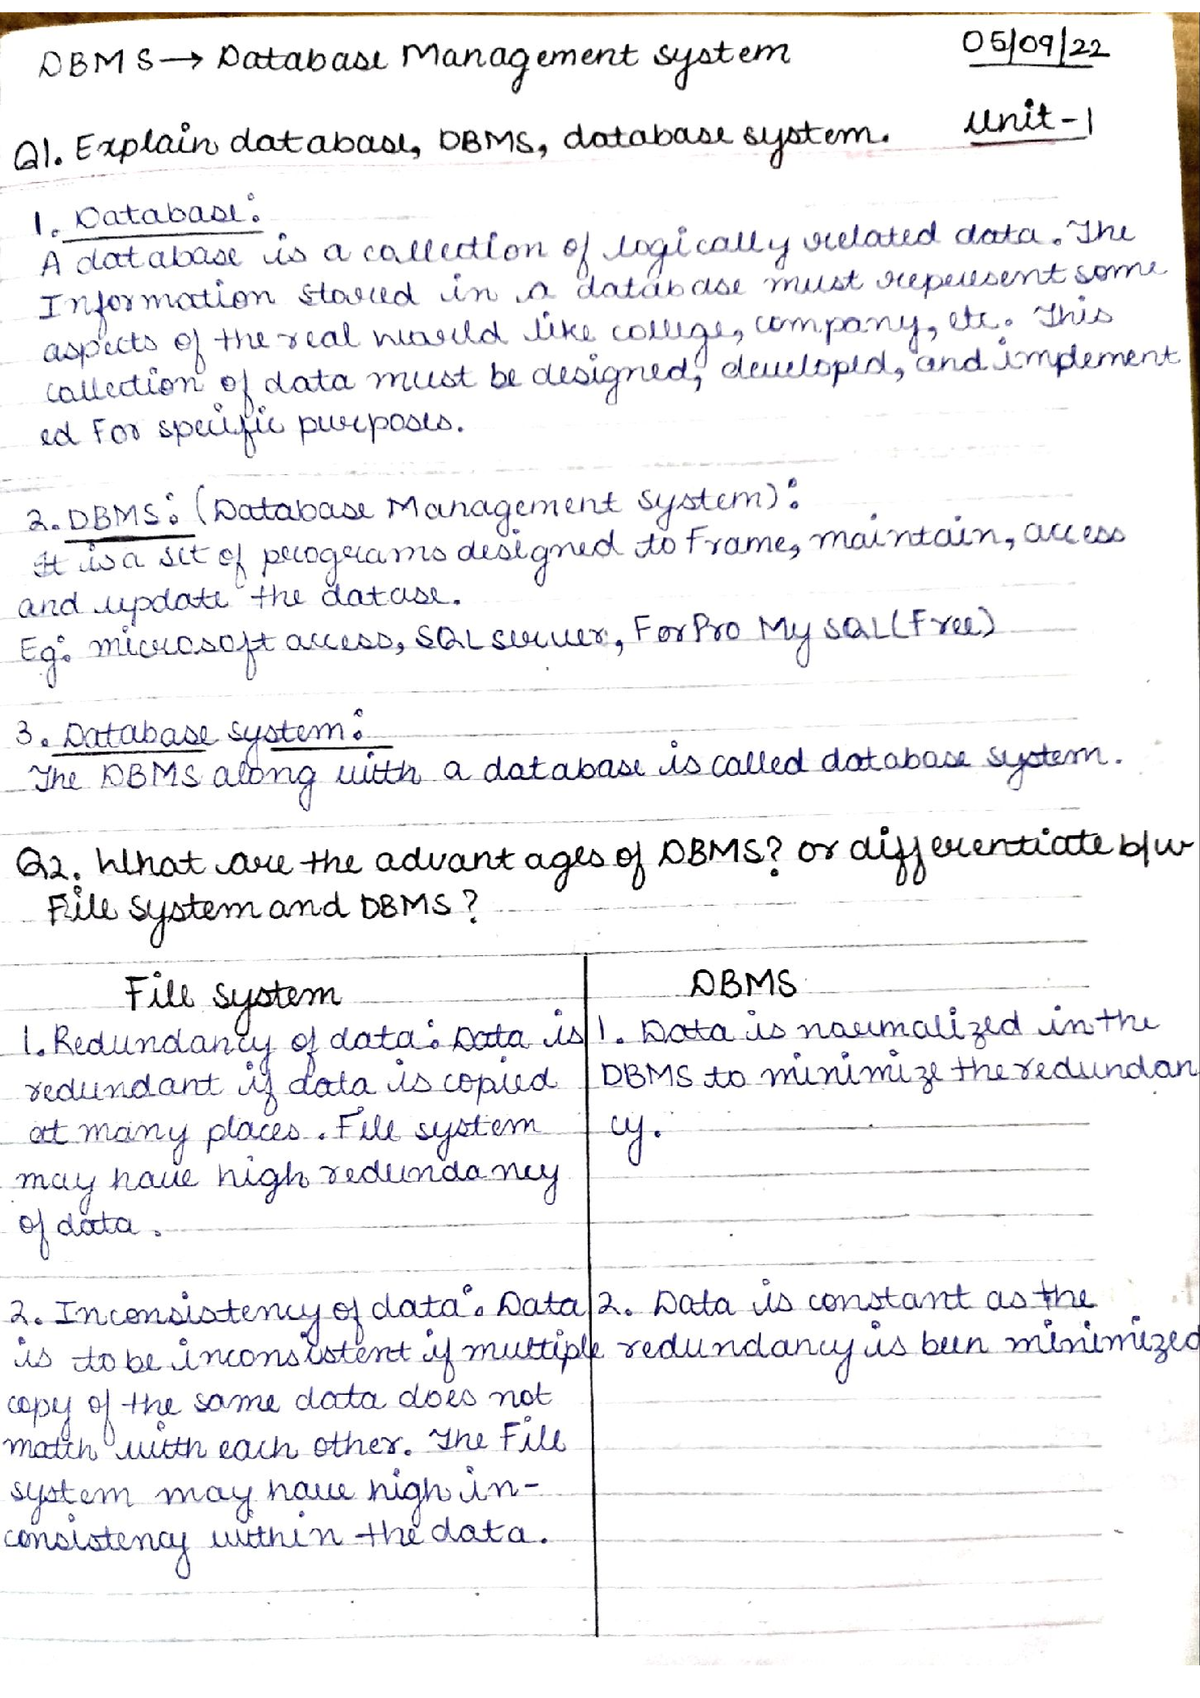 DBMS → Database Management system 05/09/22
Q1. Explain database, DBMS, database system. Unit-1
1. Database:
A database is a collection of logically related data. The
Information stored in a database must represent some
aspects of the real world like college, company, etc. This
collection of data must be designed, developed, and implement
ed For specific purposes.
2. DBMS: (Database Management system):
It is a set of programs designed to Frame, maintain, access
and update the datase.
Eg: microsoft access, SQL server, ForPro My SQL (Free)
3. Database system:
The DBMS along with a database is called database system.
Q2. What are the advantages of DBMS? or differentiate b/w
File system and DBMS?
File system
1. Redundancy of data: Data is
redundant if data is copied
at many places. File system
may have high redundancy
of data.
2. Inconsistency of data: Data
is to be inconsistent if multiple
copy of the same data does not
match with each other. The File
system may have high in-
consistency within the data.
DBMS
1. Data is normalized in the
DBMS to minimize the redundan
cy.
2. Data is constant as the
redundancy is been minimized